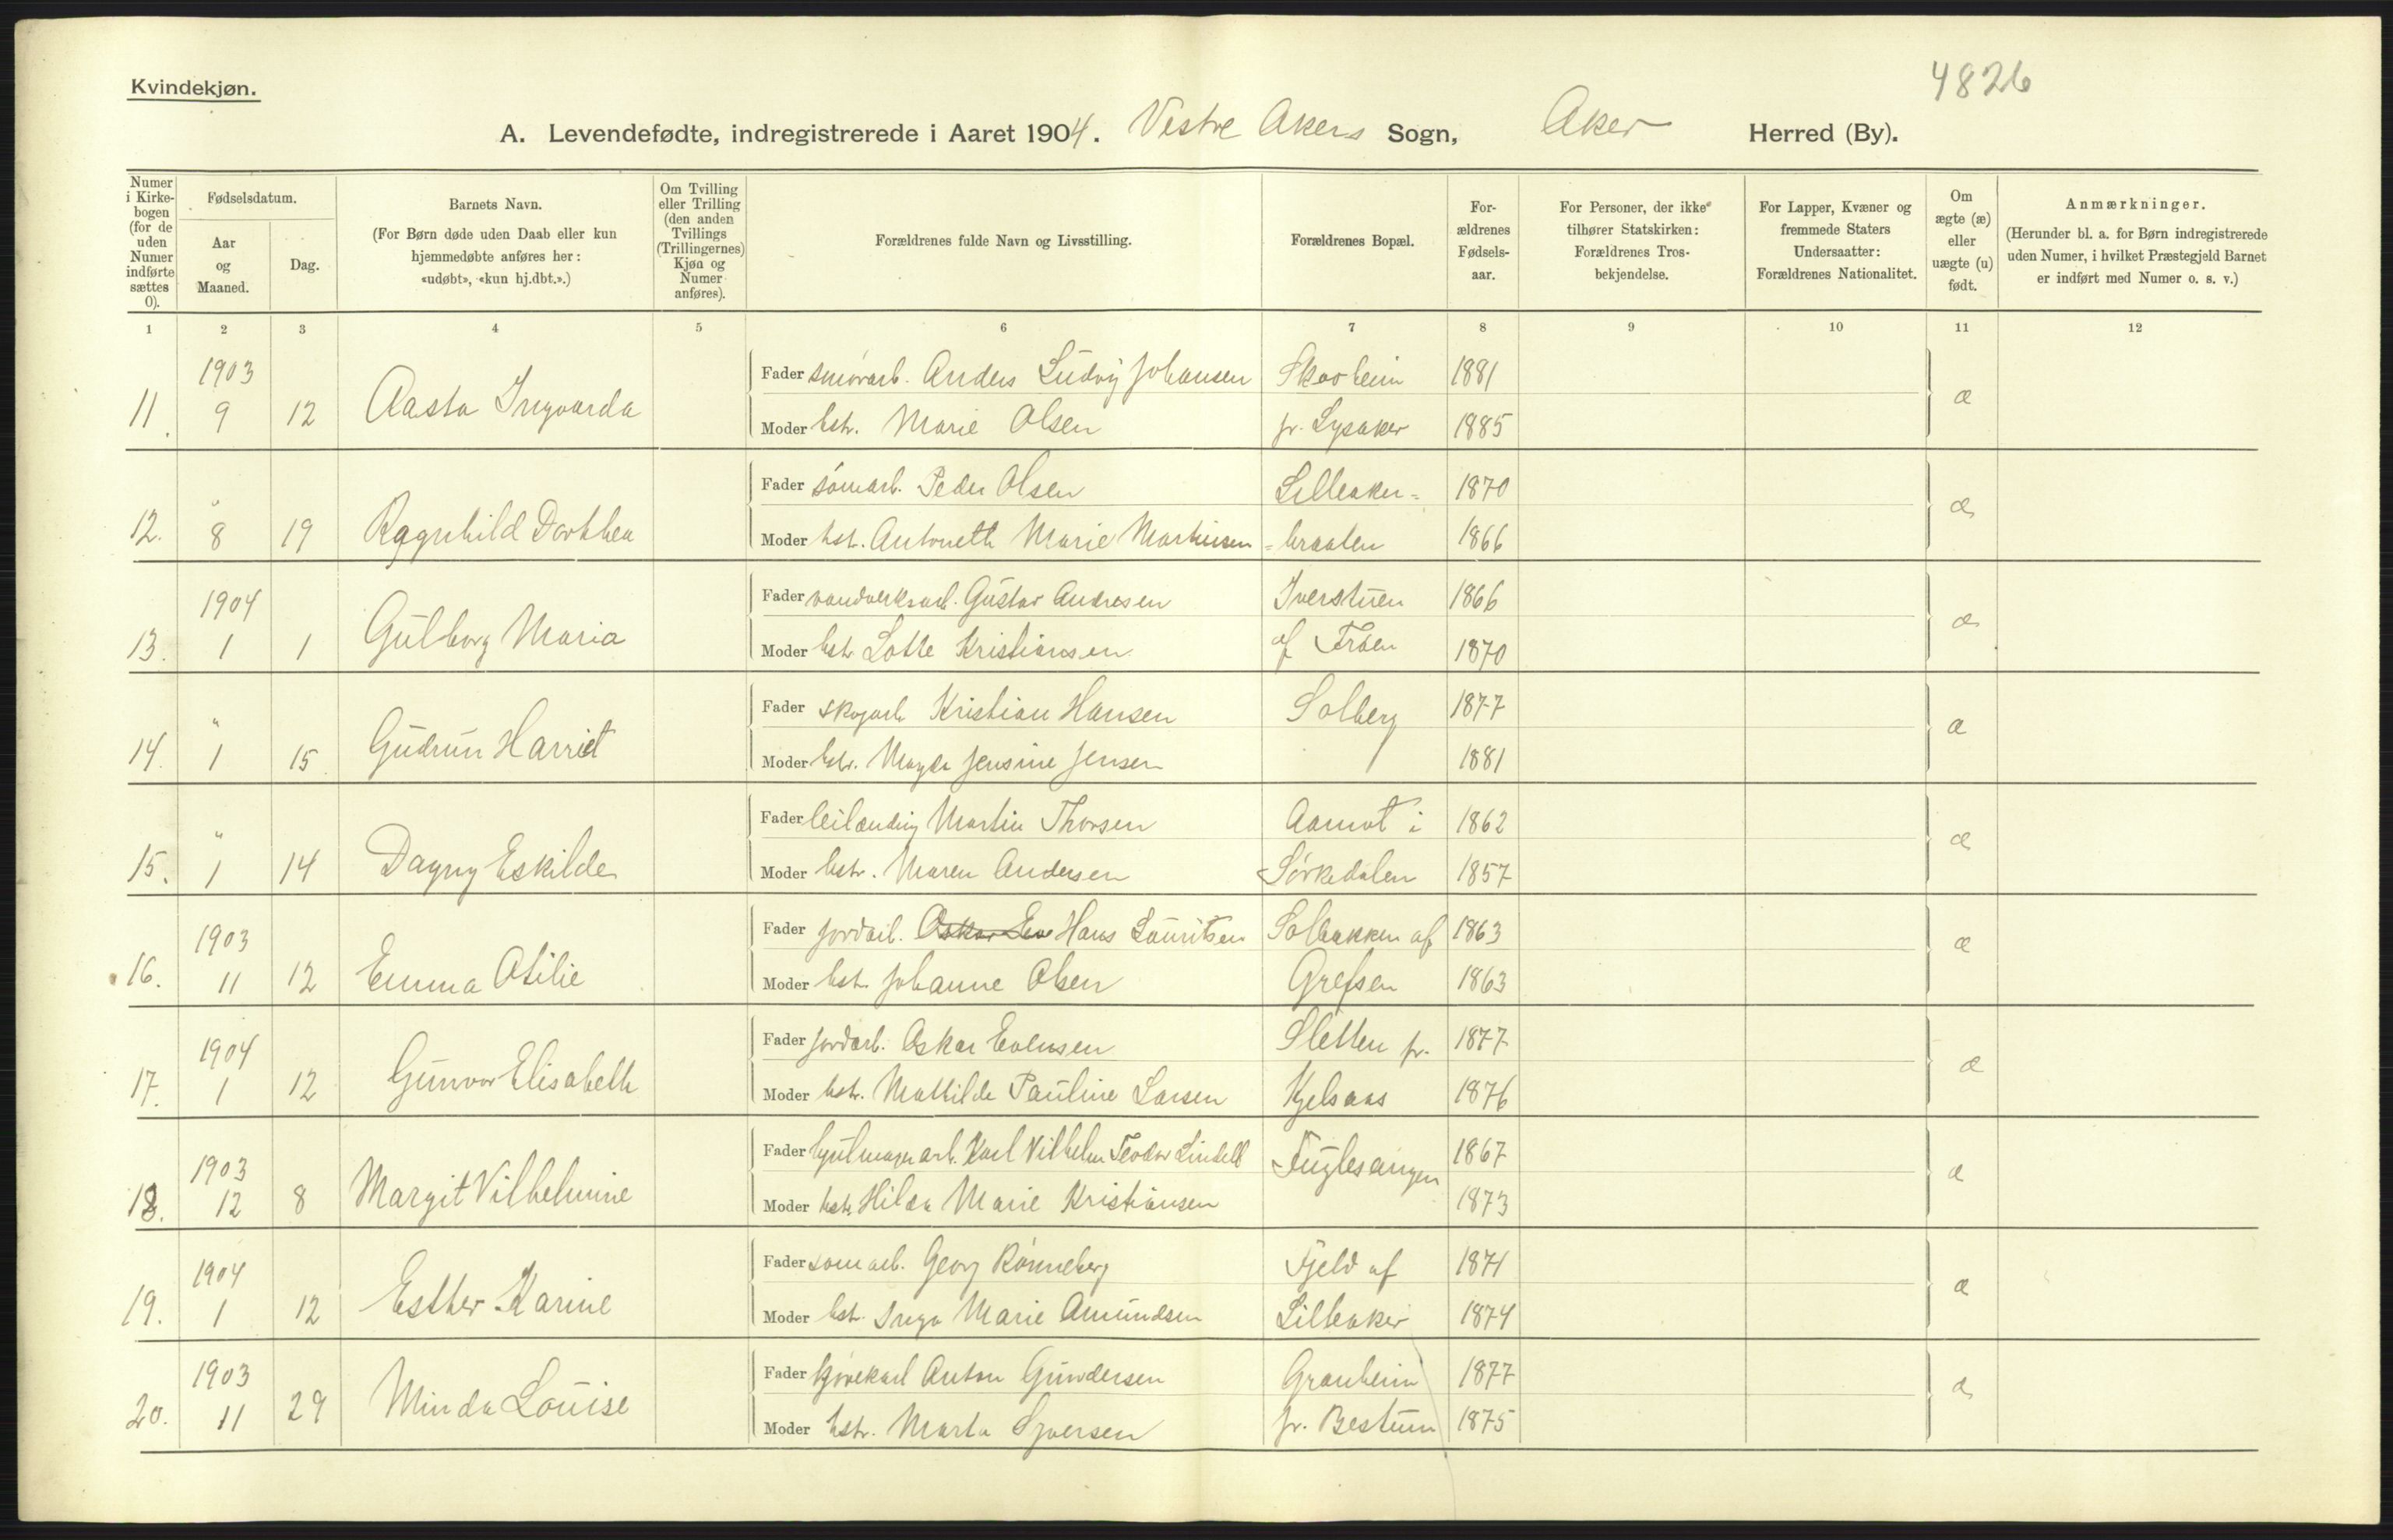 4826
Kvindekjøn.
A. Levendefødte, indregistrerede i Aaret 1904. Vestre Akers Sogn, Aker Herred (By).
Numer i Kirkebogen (for de uden Numer indførte sættes 0).
Fødselsdatum.
Aar og Maaned.
Dag.
Barnets Navn.
(For Børn døde uden Daab eller kun hjemmedøbte anføres her: «udøbt», «kun hj.dbt.».)
Om Tvilling eller Trilling (den anden Tvillings (Trillingernes) Kjøn og Numer anføres).
Forældrenes fulde Navn og Livsstilling.
Forældrenes Bopæl.
Forældrenes Fødselsaar.
For Personer, der ikke tilhører Statskirken: Forældrenes Trosbekjendelse.
For Lapper, Kvæner og fremmede Staters Undersaatter: Forældrenes Nationalitet.
Om ægte (æ) eller uægte (u) født.
Anmærkninger.
(Herunder bl. a. for Børn indregistrerede uden Numer, i hvilket Præstegjeld Barnet er indført med Numer o. s. v.)
1 2 3 4 5 6 7 8 9 10 11 12
11. 1903 9 12 Aasta Ingvarda
Fader Anders Ludvig Johansen Skoheim 1881
Moder hstr. Marie Olsen pr. Lysaker 1885
æ
12. " 8 19 Ragnhild Dorthea
Fader sömarb. Peder Olsen Lilleaker= 1870
Moder hst. Antoneth Marie Martinsen =braaten 1866
æ
13. 1904 1 1 Gulborg Maria
Fader vandverksarb. Gustav Andresen Iverstuen 1866
Moder hstr Lotte Kristiansen af Fröen 1870
æ
14. " 1 15 Gudrun Harriet
Fader skogarb Kristian Hansen Solberg 1877
Moder hstr. Magda Jensine Jensen 1881
æ
15. " 1 14 Dagny Eskilde
Fader leilænding Martin Thorsen Aamot i 1862
Moder hstr. Maren Andersen Sörkedalen 1857
æ
16. 1903 11 12 Emma Otilie
Fader jordarb. Oskar Eve Hans Lauritsen Solbakken af 1863
Moder hst. Johanne Olsen Grefsen 1863
æ
17. 1904 1 12 Gunvor Elisabeth
Fader jordarb. Oskar Evensen Sletten pr. 1877
Moder hstr. Mathilde Pauline Larsen Kjelsaas 1876
æ
18. 1903 12 8 Margit Vilhelmine
Fader hjulmagerarb. Karl Vilhelm Teodor Lindell Fuglesangen 1867
Moder hstr Hilda Marie Kristiansen 1873
æ
19. 1904 1 12 Esther Karine
Fader somarb. Georg Rönneberg Fjeld af 1871
Moder hst. Inga Marie Amundsen Lilleaker 1874
æ
20. 1903 11 29 Minda Louise
Fader Anton Gundersen Granheim 1877
Moder hstr. Marta Syversen pr. Bestum 1875
æ